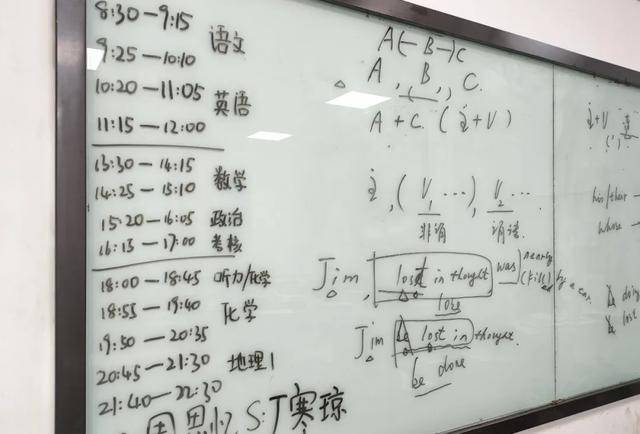 8:30—9:15
语文
9:25—10:10
10:20—11:05
英语
11:15—12:00
13:30—14:15 数学
14:25—15:10
15:20—16:05 政治
16:15—17:00 考核
18:00—18:45 听力/化学
18:55—19:40 化学
19:50—20:35
20:45—21:30 地理1
21:40—22:30
S:丁寒琼
A(-B-)C
A, B, C.
A+C (主+V)
主, (V1 …), V2 …
非谓 谓语
Jim, lost in thought was nearly
(kill) by a car.
loss
Jim be lost in thought.
be done
主+V
his/their —
whose —
doing
lost